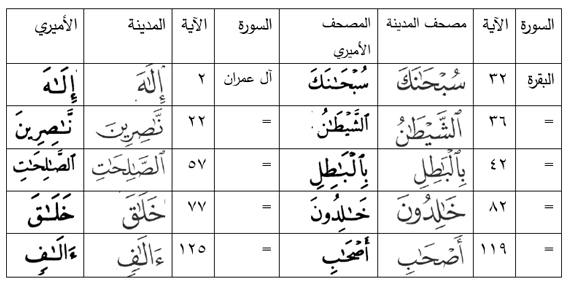 السورة الآية مصحف المدينة المصحف الأميري السورة الآية المدينة الأميري
البقرة ٣٢ سُبْحَـٰنَكَ سُبْحَـٰنَكَ آل عمران ٢ إِلَـٰهَ إِلَـٰهَ
= ٣٦ ٱلشَّيْطَـٰنُ ٱلشَّيْطَـٰنُ = ٢٢ نَّـٰصِرِينَ نَّـٰصِرِينَ
= ٤٢ بِٱلْبَـٰطِلِ بِٱلْبَـٰطِلِ = ٥٧ ٱلصَّـٰلِحَـٰتِ ٱلصَّـٰلِحَـٰتِ
= ٨٢ خَـٰلِدُونَ خَـٰلِدُونَ = ٧٧ خَلَـٰقَ خَلَـٰقَ
= ١١٩ أَصْحَـٰبِ أَصْحَـٰبِ = ١٢٥ ءَالَـٰفٍ ءَالَـٰفٍ